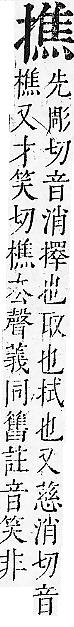 撨
先彫切音消擇也取也拭也又慈消切音
樵又才笑切樵去聲義同舊註音笑非